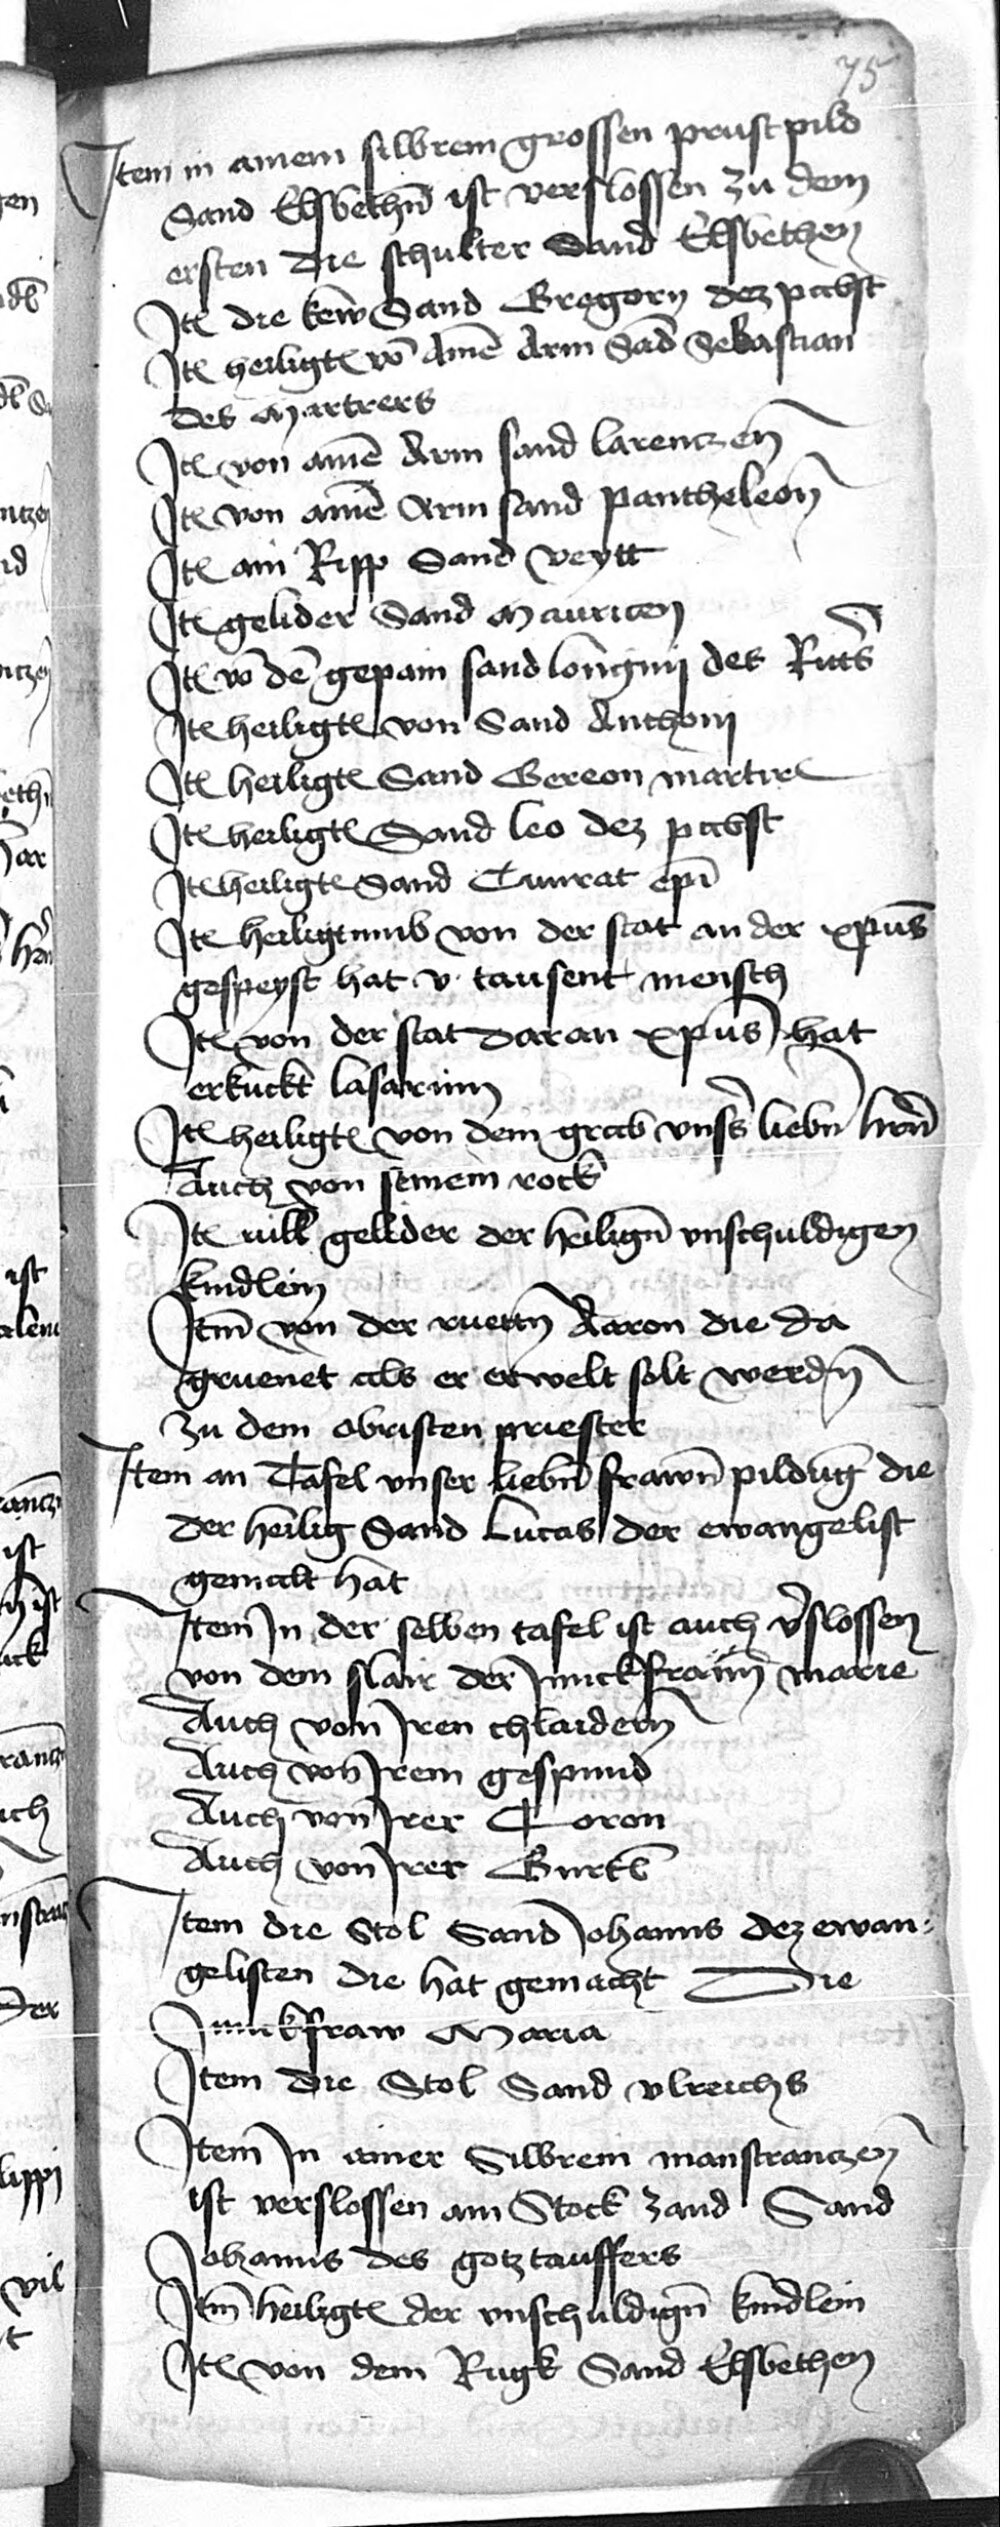 75
Item in ainem silbrem grossen prustpild
Sand Elsbethn̄ ist verslossen zu dem
ersten die schulter Sand Elsbethen
Itē die kew̄ Sand Gregorÿ dez pabst
Itē heiligtē vō ainē Arm Sād Sebastian
des Martrers
Itē von ainē Arm sand larenczen̄
Itē von ainē Arm sand pantheleon̄
Itē ain Ripp Sand veytt
Itē gelider Sand Mauricen
Itē vō dē gepain sand longinij des Ritt̄s
Itē heiligtē von Sand Anthonij
Itē heiligtē Sand Gereon martire
Itē heiligtē Sand leo dez pabst
Itē heiligtē Sand Cunrat epī
Itē heiligtumb von der stat an der xpūs
gespeyst hat v tausent mensch
Itē von der stat daran xpūs hat
erkuckt lasarum
Itē heiligtē von dem grab vns̄s liebn̄ hrn̄
Auch von seinem rock
Itē vill gelider der heilign̄ vnschuldigen
kindlein
Itm̄ von der ruettn̄ Aaron die da
gruenet als er erwelt solt werdn̄
zu dem obristen priester
Item an Tafel vnser liebn̄ frawn̄ pildung die
der heilig Sand Lucas der ewangelist
gemalt hat
Item In der selben tafel ist auch v̄slossen
von dem slair der Junckfrawn̄ marie
Auch von Iren chlaidern̄
Auch von Irem gespund
Auch von Irer Coron
Auch von Irer Gurtl̄
Item die Stol Sand Johanns dez ewan:
gelisten die hat gemacht Die
Junckfraw Maria
Item die Stol Sand vlreichs
Item In ainer Silbrein manstranczen̄
ist verslossen ain Stock zand Sand
Johanns des gotztauffers
Itm̄ heiligtē der vnschuldign̄ kindlein
Itē von dem Rugk Sand Elsbethen